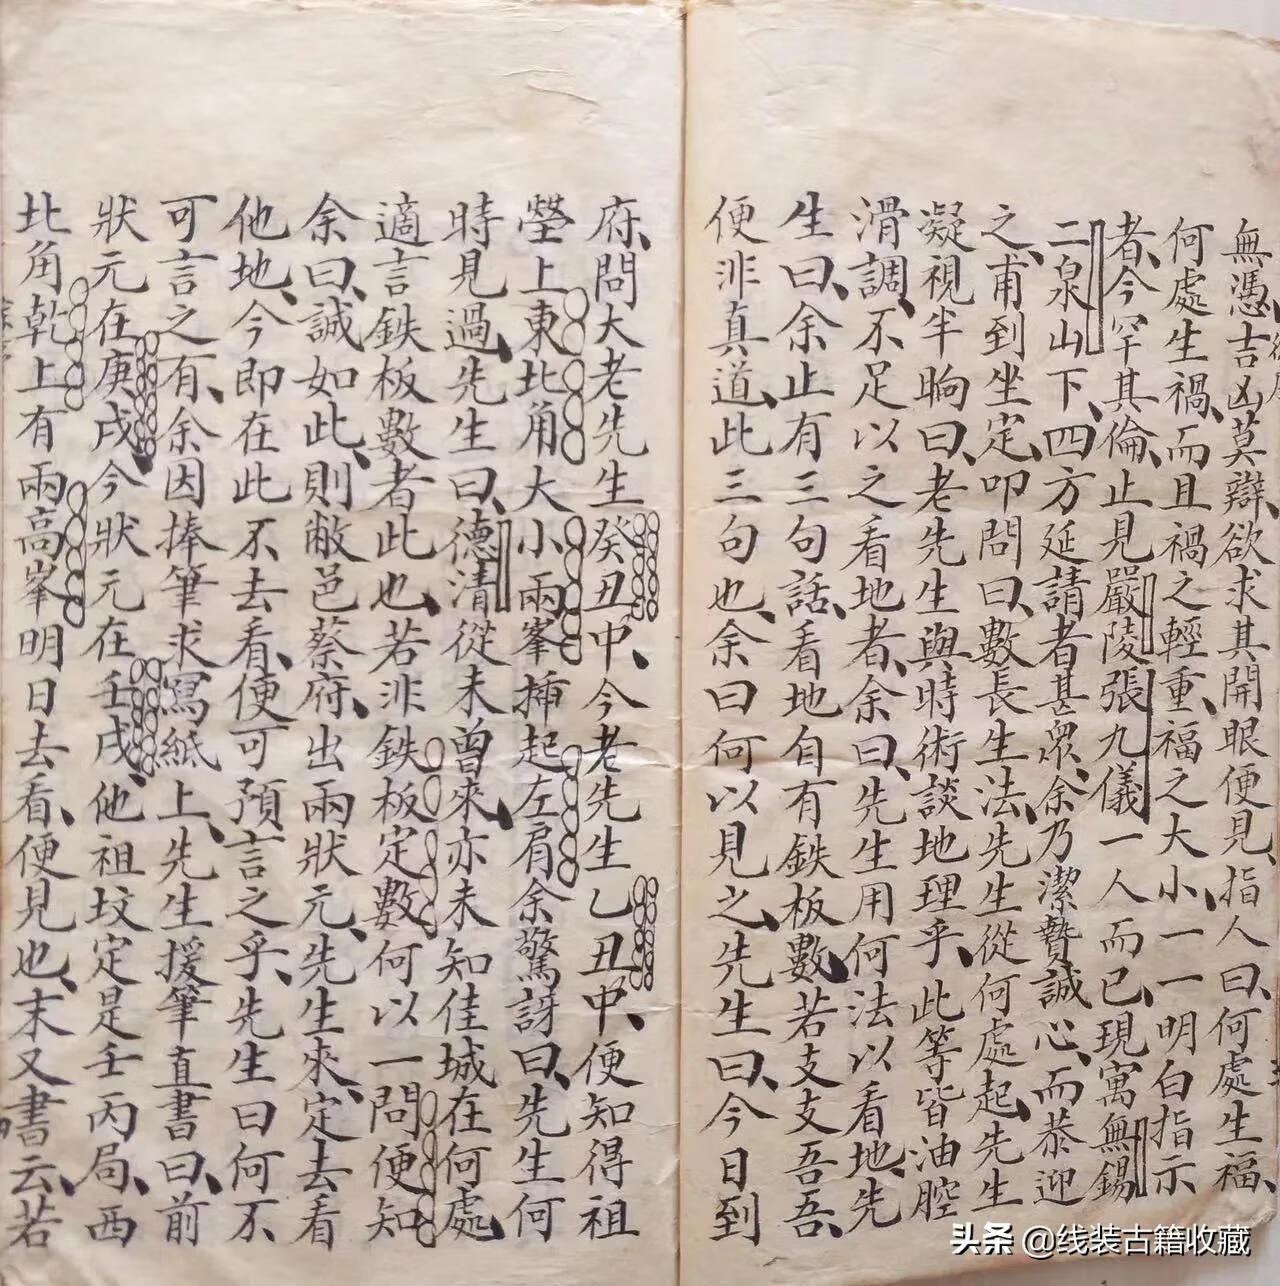 無憑、吉凶莫辯、欲求其開眼便見、指人曰、何處生福、
何處生禍、而且禍之輕重、福之大小、一一明白指示
者、今罕其倫、止見嚴陵張九儀一人而已、現寓無錫
二泉山下、四方延請者甚衆、余乃潔贄誠心、而恭迎
之、甫到坐定、叩問曰、數長生法、先生從何處起、先生
凝視半晌曰、老先生與時術談地理乎、此等皆油腔
滑調、不足以之看地者、余曰、先生用何法以看地、先
生曰、余止有三句話、看地自有鉄板數、若支支吾吾、
便非真道、此三句也、余曰何以見之、先生曰、今日到
府、問大老先生癸丑中、今老先生乙丑中、便知得祖
塋上東北角大小兩峯揷起左肩、余驚訝曰、先生何
時見過、先生曰、德清從未曾來、亦未知佳城在何處、
適言鉄板數者此也、若非鉄板定數、何以一問便知
余曰、誠如此、則敝邑蔡府、出兩狀元、先生來、定去看
他地、今即在此不去看、便可預言之乎、先生曰何不
可言之有、余因捧筆求冩紙上、先生援筆直書曰、前
狀元在庚戌、今狀元在壬戌、他祖坟定是壬丙局、西
北角乾上有兩高峯、明日去看、便見也、末又書云、若
头条 @线装古籍收藏